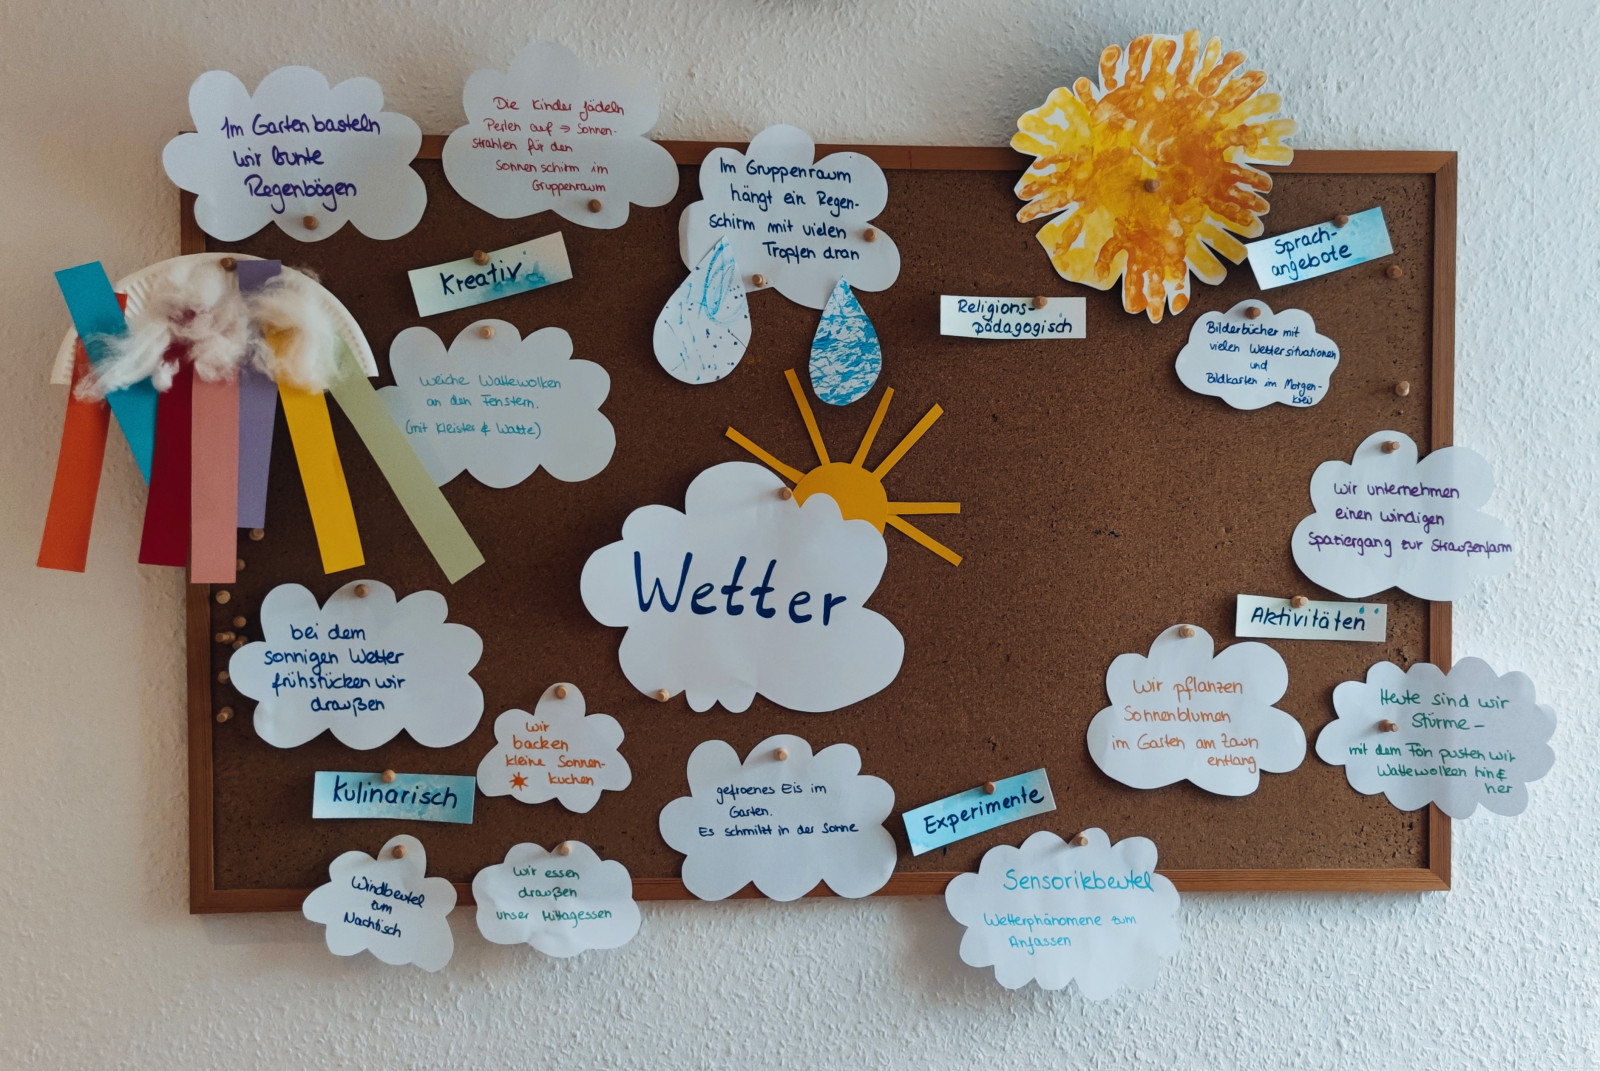 Im Garten basteln
wir bunte
Regenbögen
Die Kinder fädeln
Perlen auf → Sonnen-
strahlen für den
Sonnenschirm im
Gruppenraum
Im Gruppenraum
hängt ein Regen-
schirm mit vielen
Tropfen dran
Kreativ
weiche Wattewolken
an den Fenstern.
(mit Kleister & Watte)
Religions-
pädagogisch
Sprach-
angebote
Bilderbücher mit
vielen Wettersituationen
und
Bildkarten im Morgen-
kreis
Wir unternehmen
einen windigen
Spaziergang zur Straußenfarm
Wetter
Aktivitäten
Wir pflanzen
Sonnenblumen
im Garten am Zaun
entlang
Heute sind wir
Stürme -
mit dem Fön pusten wir
Wattewolken hin &
her
bei dem
sonnigen Wetter
frühstücken wir
draußen
Wir
backen
kleine Sonnen-
kuchen
Kulinarisch
Windbeutel
zum
Nachtisch
Wir essen
draußen
unser Mittagessen
gefroenes Eis im
Garten.
Es schmilzt in der Sonne
Experimente
Sensorikbeutel
Wetterphänomene zum
Anfassen